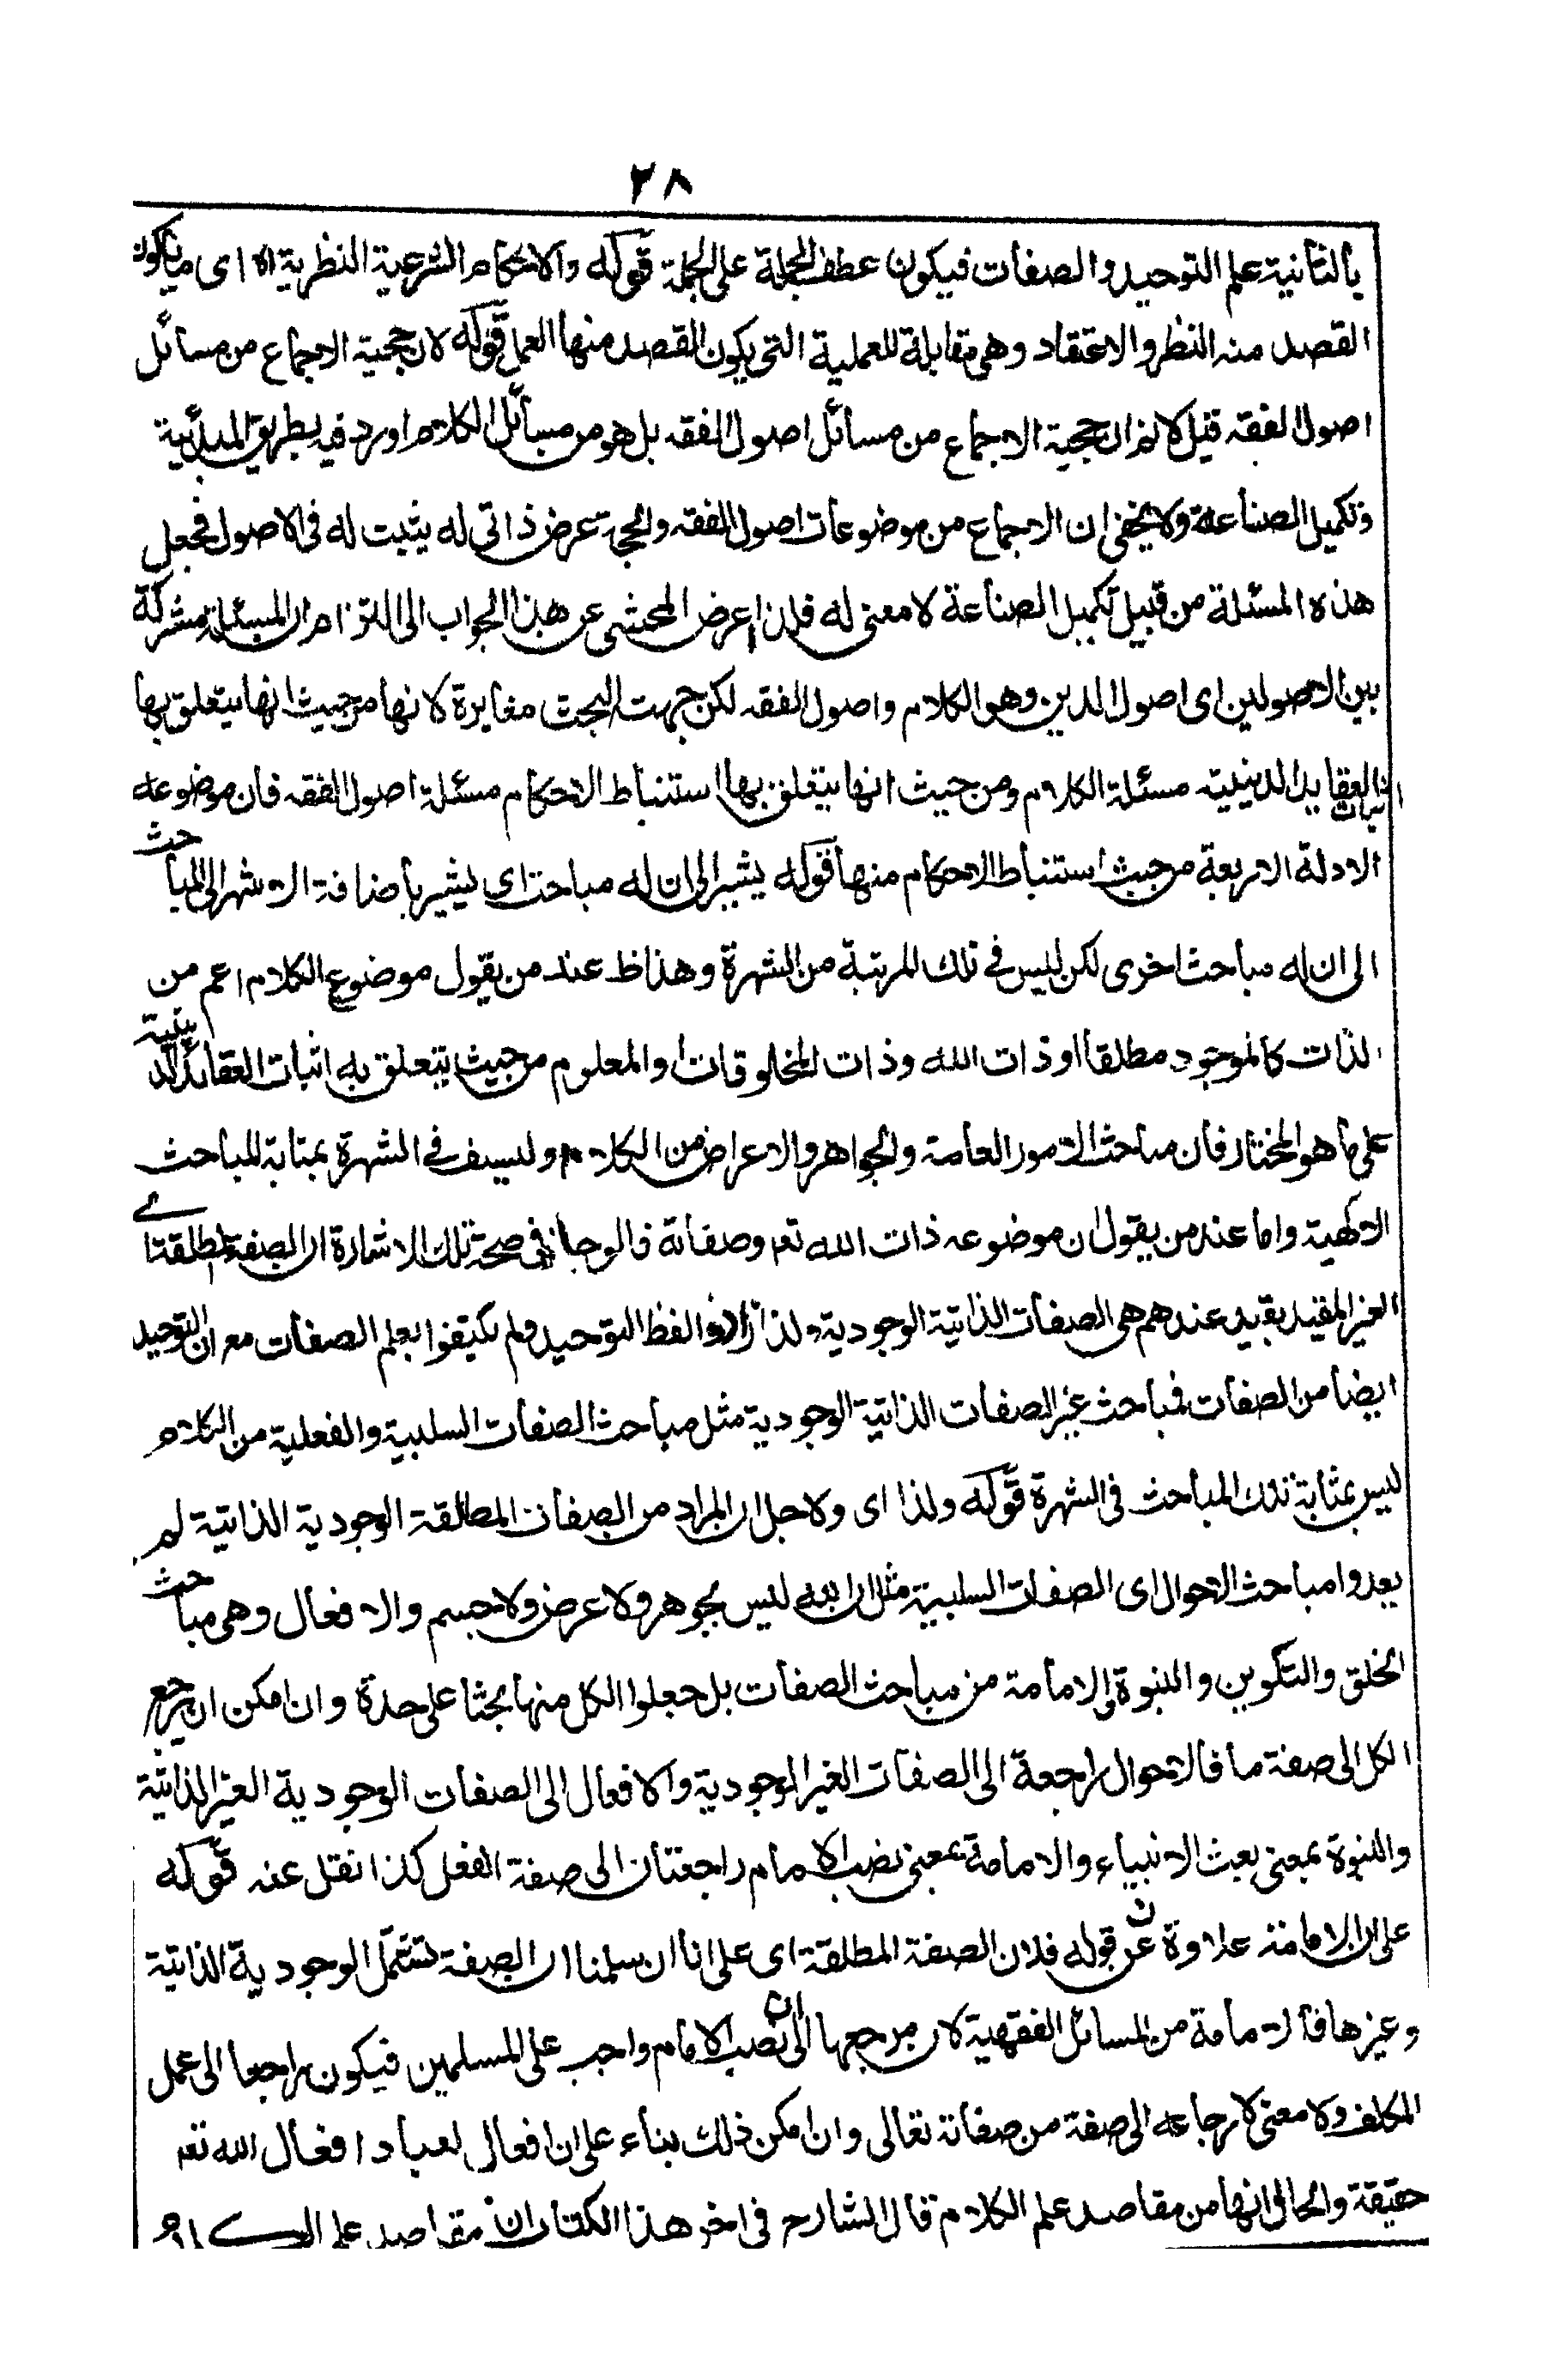 ٢٨
بالثانية علم التوحيد والصفات فيكون عطف الجملة على الجملة قوله والاحكام الشرعية النظرية اه اى ما يكون
القصد منه النظر والاعتقاد وهى مقابلة للعملية التى يكون القصد منها العمل قوله لان حجية الاجماع من مسائل
اصول الفقه قيل لا نم ان حجية الاجماع من مسائل اصول الفقه بل هو من مسائل الكلام اورد فيه بطريق المبدئية
وتكميل الصناعة ولا يخفى ان الاجماع من موضوعات اصول الفقه والحجية عرض ذاتى له يثبت له فى الاصول فجعل
هذه المسئلة من قبيل تكميل الصناعة لا معنى له فلذا اعرض المحشى عن هذا الجواب الى التزام ان المسئلة مشتركة
بين الاصولين اى اصول الدين وهو الكلام واصول الفقه لكن جهت البحث مغايرة لانها من حيث انها يتعلق بها
اثبات العقايد الدينية مسئلة الكلام ومن حيث انها يتعلق بها استنباط الاحكام مسئلة اصول الفقه فان موضوعه
الادلة الاربعة من حيث استنباط الاحكام منها قوله يشير الى ان له مباحث اى يشير باضافة الاشهر الى المباحث
الى ان له مباحث اخرى لكن ليس فى تلك المرتبة من الشهرة وهذا ظ عند من يقول موضوع الكلام اعم من
الذات كالموجود مطلقا او ذات الله وذات المخلوقات او المعلوم من حيث يتعلق به اثبات العقائد الدينية
على ما هو المختار فان مباحث الامور العامة والجواهر والاعراض من الكلام وليست فى الشهرة بمثابة المباحث
الالهية واما عند من يقول ان موضوعه ذات الله تعه وصفاته فالوجه فى صحة تلك الاشارة ان الصفة المطلقة اے
الغير المقيد بقيد عندهم هى الصفات الذاتية الوجودية ولذا زادوا لفظ التوحيد ولم يكتفوا بعلم الصفات مع ان التوحيد
ايضا من الصفات فمباحث غير الصفات الذاتية الوجودية مثل مباحث الصفات السلبية والفعلية من الكلام
ليس بمثابة تلك المباحث فى الشهرة قوله ولذا اى ولاجل ان المراد من الصفات المطلقة الوجودية الذاتية لم
يعدوا مباحث الاحوال اى الصفات السلبية مثل ان الله ليس بجوهر ولا عرض ولا جسم والافعال وهى مباحث
الخلق والتكوين والنبوة والامامة من مباحث الصفات بل جعلوا الكل منها بحثا على حدة وان امكن ان يرجع
الكل الى صفة ما فالاحوال راجعة الى الصفات الغير الوجودية والافعال الى الصفات الوجودية الغير الذاتية
والنبوة بمعنى بعث الانبياء والامامة بمعنى نصب الامام راجعتان الى صفة الفعل كذا نقل عنه قوله
على ان الامامة علاوة عن قوله فلان الصفة المطلقة اى على انا ان سلمنا ان الصفة تشتمل الوجودية الذاتية
وغيرها فالامامة من المسائل الفقهية لان مرجعها الى ان نصب الامام واجب على المسلمين فيكون راجعا الى عمل
المكلف ولا معنى لارجاعه الى صفة من صفاته تعالى وان امكن ذلك بناء على ان افعال العباد افعال الله تعه
حقيقة والحال انها من مقاصد علم الكلام قال الشارح فى اخر هذا الكتاب ان مقاصد علم الكلام